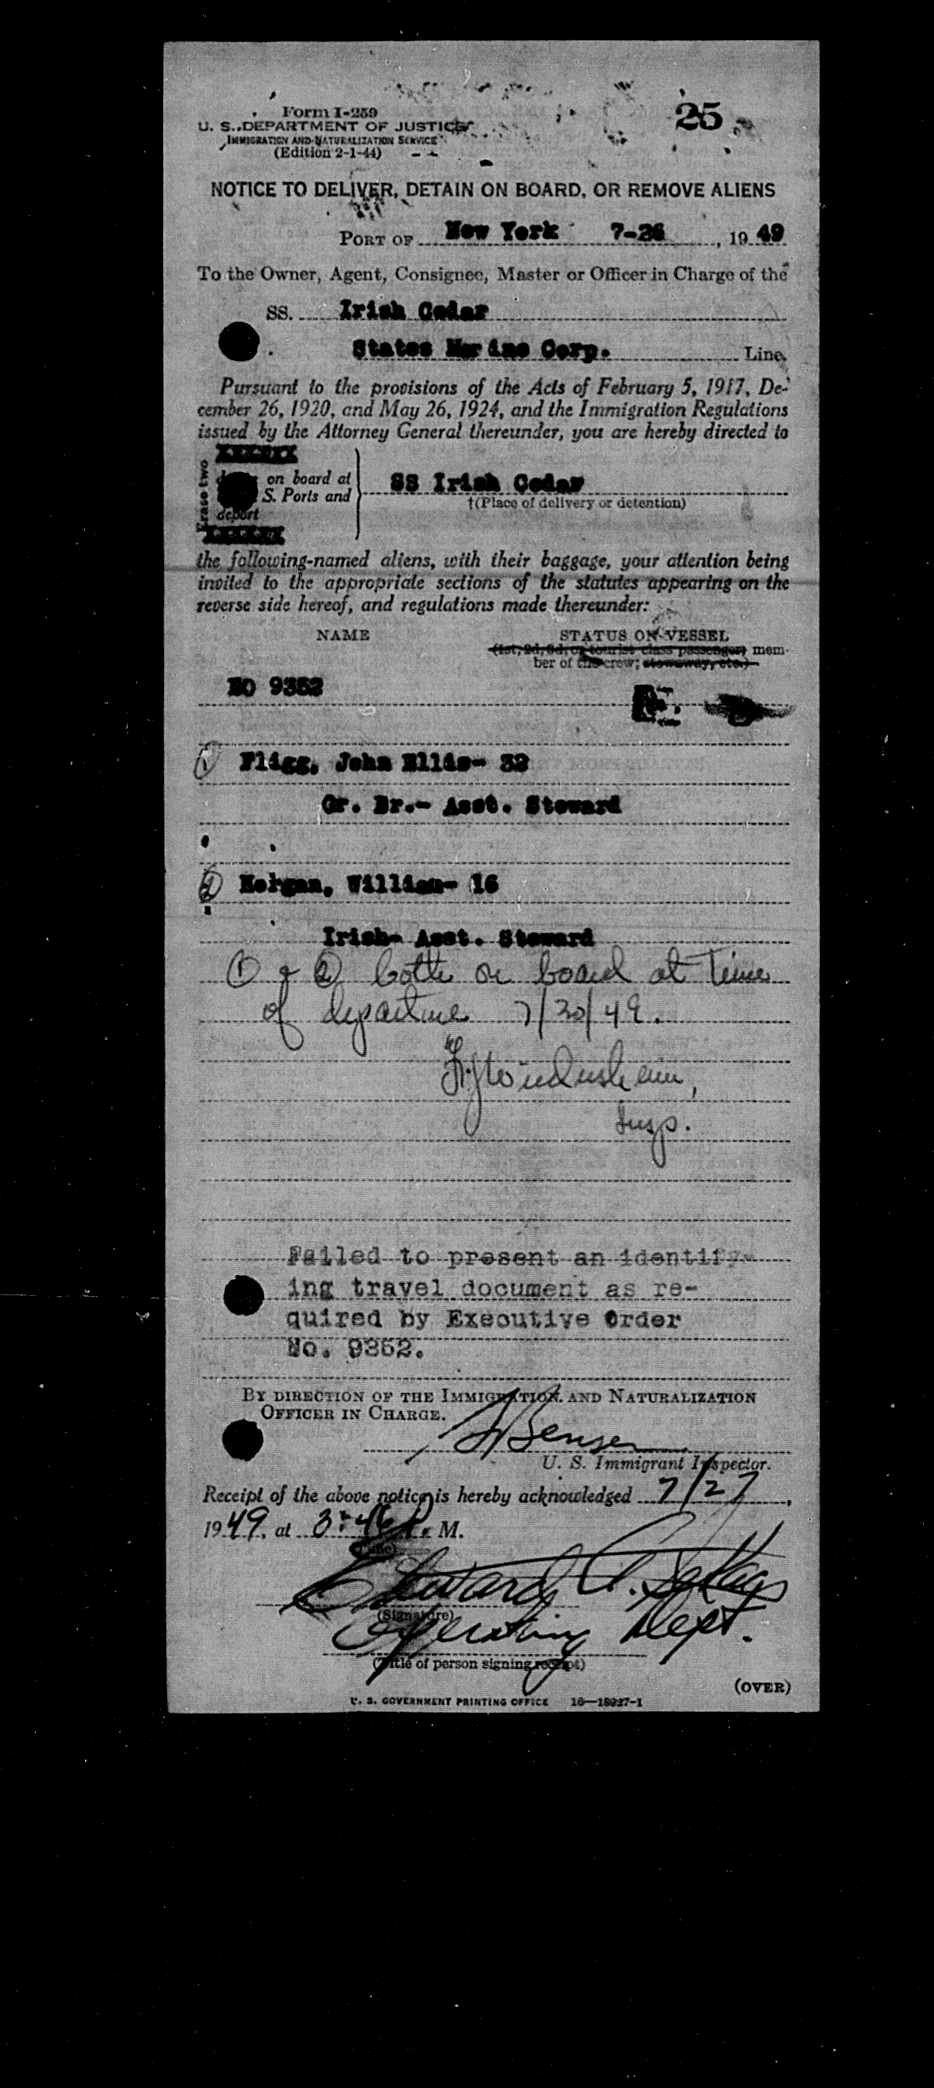 Form I-259
25
U. S. DEPARTMENT OF JUSTICE
IMMIGRATION AND NATURALIZATION SERVICE
(Edition 2-1-44)
NOTICE TO DELIVER, DETAIN ON BOARD, OR REMOVE ALIENS
PORT OF New York 7-26, 1949
To the Owner, Agent, Consignee, Master or Officer in Charge of the
SS. Irish Cedar
States Marine Corp. Line.
Pursuant to the provisions of the Acts of February 5, 1917, De-
cember 26, 1920, and May 26, 1924, and the Immigration Regulations
issued by the Attorney General thereunder, you are hereby directed to
Erase two
on board at
S. Ports and
deport
SS Irish Cedar
†(Place of delivery or detention)
the following-named aliens, with their baggage, your attention being
invited to the appropriate sections of the statutes appearing on the
reverse side hereof, and regulations made thereunder:
NAME STATUS ON VESSEL
(1st, 2d, 3d, or tourist class passenger, mem-
ber of the crew; stowaway, etc.)
EO 9352
① Fligg, John Ellis- 32
Gr. Br.- Asst. Steward
② Morgan, William- 16
Irish- Asst. Steward
① & ② both on board at time
of departure 7/30/49.
Insp.
Failed to present an identify-
ing travel document as re-
quired by Executive Order
No. 9352.
BY DIRECTION OF THE IMMIGRATION AND NATURALIZATION
OFFICER IN CHARGE.
U. S. Immigrant Inspector.
Receipt of the above notice is hereby acknowledged 7/27,
1949, at 3:46 P. M.
(Time)
Edward A.
(Signature)
Operating Dept.
(Title of person signing receipt)
(OVER)
U. S. GOVERNMENT PRINTING OFFICE 16—18927-1